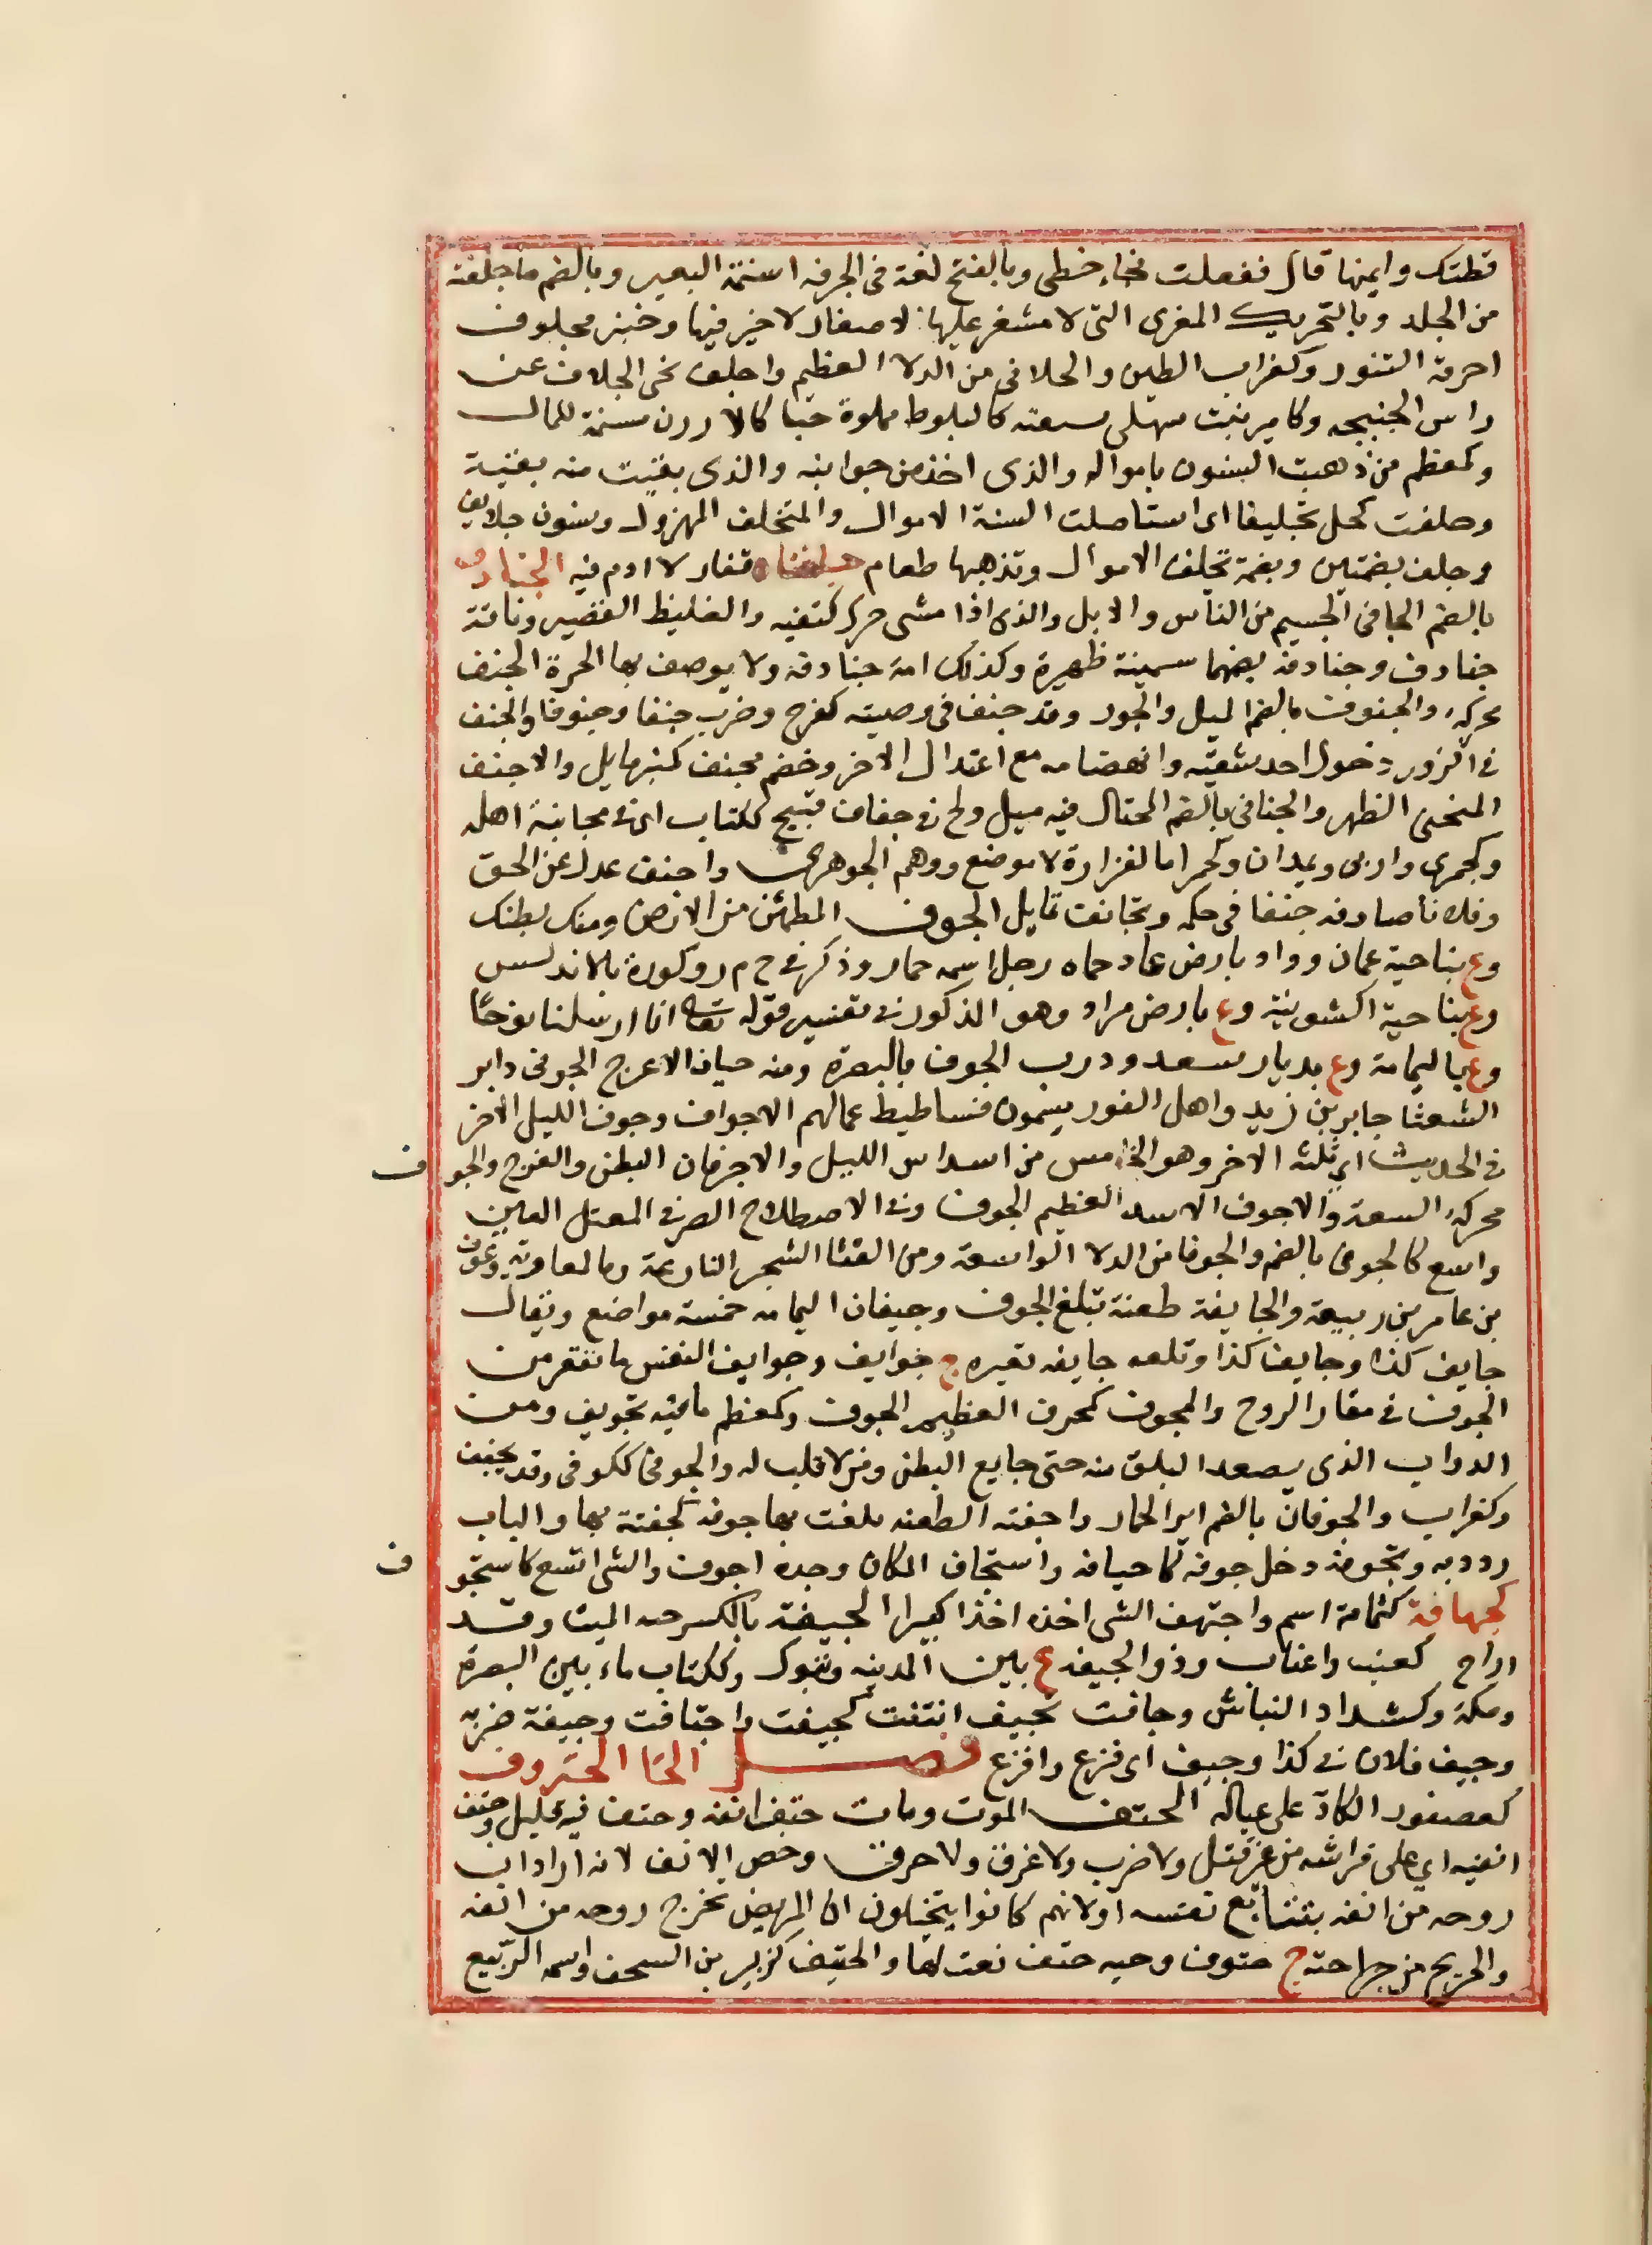 قطتك وايمنها قال ففعلت فجاء خطى وبالفتح لغة فى الجرفه اسنمة البعير وبالضم ما جلفته
من الجلد وبالتحريك المغرى التى لا مشغر عليها لا صغار لا خير فيها وخبز مجلوف
احرقه التنور وكغراب الطين والجلافى من الدلا العظيم واجلف نحى الجلاف عن
راس الجنبيجه وكامير نبت سهلى سنفته كالبلوط مملوة حبا كالارزن مسمنة للمال
وكمعظم من ذهبت السنون باموالہ والذى اخذ من جوانبه والذى بقيت منه بقية
وجلفت كحل تجليفا اى استاصلت السنة الاموال والمتجلف المهزول وسنون جلايف
وجلف بضمتين وبضمة تجلف الاموال وتذهبها طعام جلنفاه قفار لا ادم فيه الجنادف
بالضم الجافى الجسيم من الناس والابل والذى اذا مشى حرك كتفيه والغليظ القصير وناقة
جنادف وجنادفه بضمهما سمينة ظهيرة وكذلك امة جنادفه ولا يوصف بها الحرة الجنف
محركہ والجنوف بالضم الميل والجور وقد جنف فى وصيته كفرح وضرب جنفا وجنوفا والجنف
فى الزور دخول احد شقيه وانهضامه مع اعتدال الاخر وخصم مجنف كمنبر مايل والاجنف
المنحنى الظهر والجنافى بالضم المختال فيه ميل ولج فى جناف قبيح ككتاب اى فى مجانبة اهله
وكجمزى واربى ويمدان وكحمرا ما لفزارة لا موضع ووهم الجوهرى واجنف عدل عن الحق
وفلانا صادفه جنفا فى حكمه وتجانف تمايل الجوف المطمئن من الارض ومنك بطنك
وع بناحية عمان وواد بارض عاد حماه رجل اسمه حمار وذكر فى ح م ر وكورة بالاندلس
وع بناحية اكشونية وع بارض مراد وهو المذكور فى تفسير قوله تعالى انا ارسلنا نوحا
وع باليمامة وع بديار سعد ودرب الجوف بالبصرة ومنه حيان الاعرج الجوفى وابو
الشعثا جابر بن زيد واهل الغور يسمون فساطيط عمالهم الاجواف وجوف الليل الاخر
فى الحديث اى ثلثه الاخر وهو الخامس من اسداس الليل والاجوفان البطن والفرج والجوف
محركہ السعة والاجوف الاسد العظيم الجوف وفى الاصطلاح الصرفى المعتل العين
واسع كالجوفى بالضم والجوفا من الدلا الواسعة ومن القنا الشجر الفارغة وما لمعاوية وعوف
بن عامر بن ربيعة والجايفة طعنة تبلغ الجوف وجيفان اليمامه خمسة مواضع ويقال
جايف كذا وجايف كذا وتلعه جايفه قعيره ج جوايف وجوايف النفس ما تقعر من
الجوف فى مقار الروح والمجوف كمخوف العظيم الجوف وكمعظم ما فيه تجويف ومن
الدواب الذى يصعد البلق منه حتى جايع البطن ومن لا قلب له والجوفى ككوفى وقد يخفف
وكغراب والجوفان بالضم اير الحمار واجفته الطعنه بلغت بها جوفه كجفته بها والباب
رددته وتجوفه دخل جوفه كاجتافه واستجاف المكان وجده اجوف والشى اتسع كاستجوف
كجهافة كثمامة اسم واجتهف الشى اخذه اخذا كثيرا الجيفة بالكسر جثه الميت وقد
اراح كعنب واعناب وذو الجيفه ع بين المدينه وتبوك وككتاب ماء بين البصرة
ومكة وكشداد النباش وجافت تجيف انتنت كجيفت واجتافت وجيفة ضربه
وجيف فلان فى كذا وجيف اى فزع وافزع فصل الحا الحتروف
كعصفور الكاد على عياله الحتف الموت ومات حتف انفه وحتف فيه قليل وحتف
انفيه اى على فراشه من غير قتل ولا ضرب ولا غرق ولا حرق وخص الانف لانه اراد ان
روحه من انفه بتتابع نفسه اولانهم كانوا يتخيلون ان المريض تخرج روحه من انفه
والجريح من جراحته ج حتوف وحيه حتف نعت لها والحتيف كزبير بن السجف واسمه الربيع